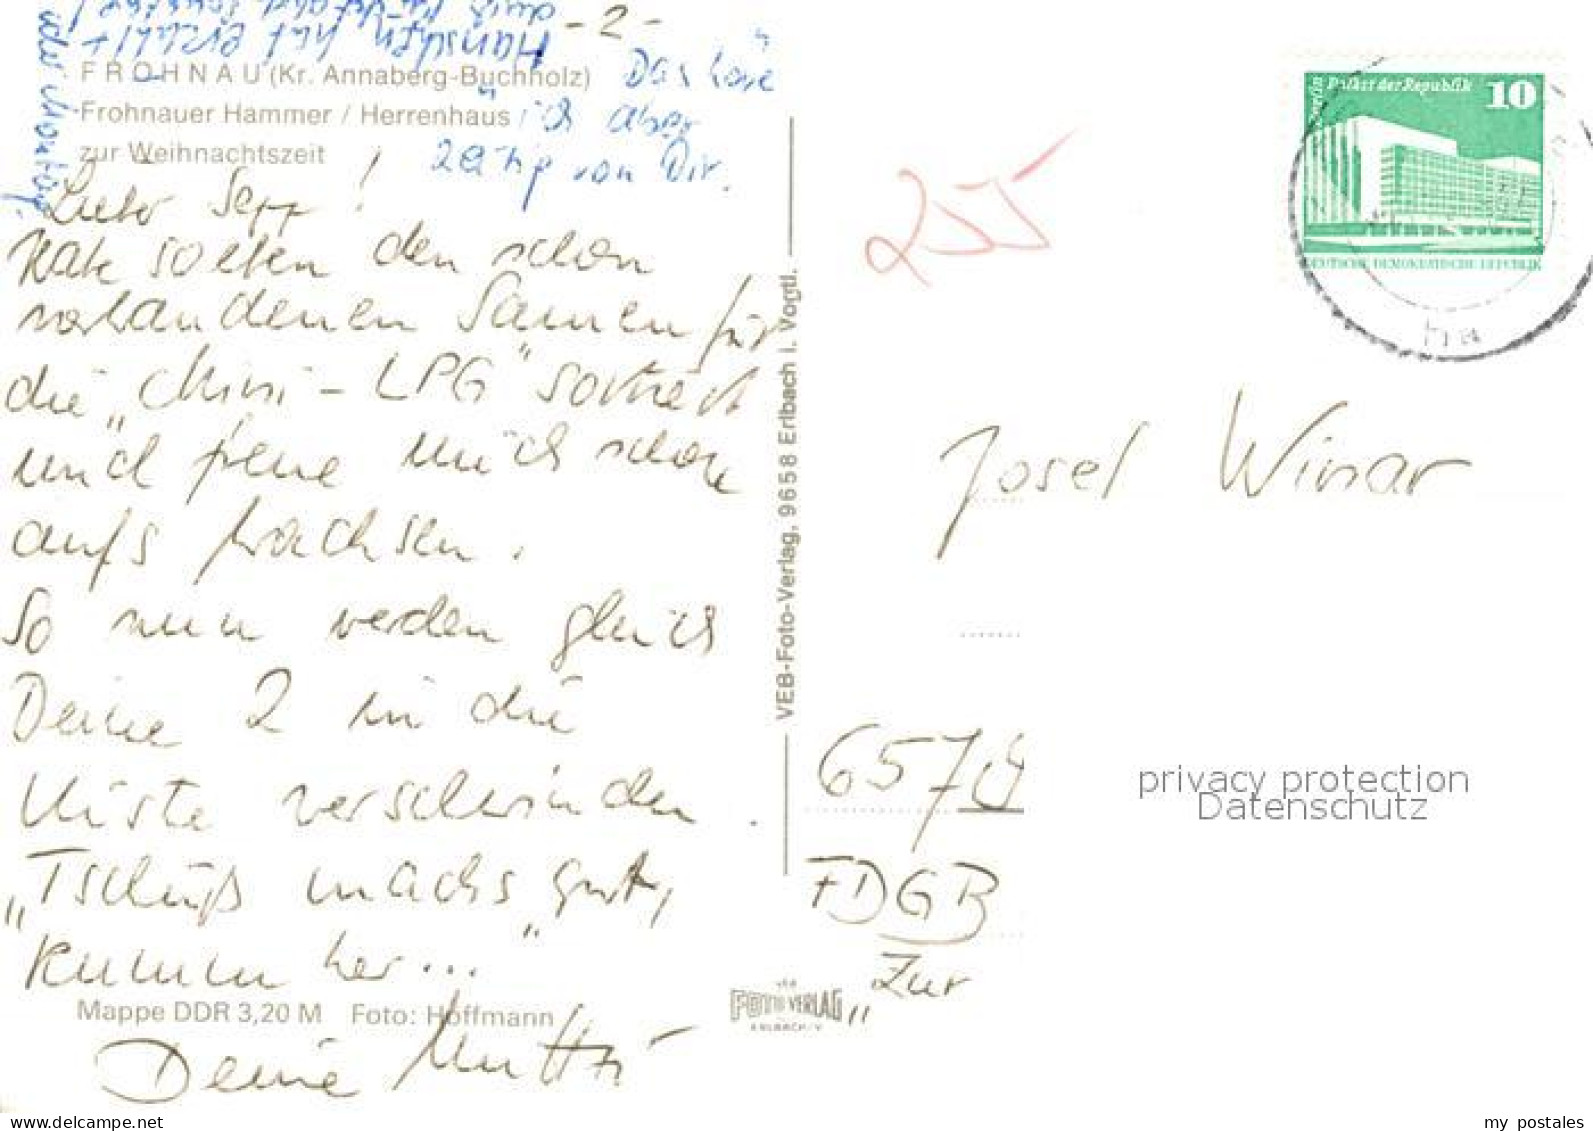 -2-
Hänschen hat erzählt
Das höre
ich aber
von Dir.
FROHNAU (Kr. Annaberg-Buchholz)
Frohnauer Hammer / Herrenhaus
zur Weihnachtszeit
Lieber Sepp!
sollen den schon
vorhandenen Samen für
die „Mini-LPG" sortiert
und freue mich schon
aufs Wachsen.
So nun werden gleich
Deine 2 in die
Kiste verschwinden.
„Tschüß machs gut,
kumm her..."
Deine Mutti
Mappe DDR 3,20 M Foto: Hoffmann
VEB-Foto-Verlag, 9658 Erlbach i. Vogtl.
VEB
FOTO-VERLAG
ERLBACH/V.
255
Berlin Palast der Republik 10
DEUTSCHE DEMOKRATISCHE REPUBLIK
Josef
657
FDGB
„Zur
privacy protection
Datenschutz
my postales